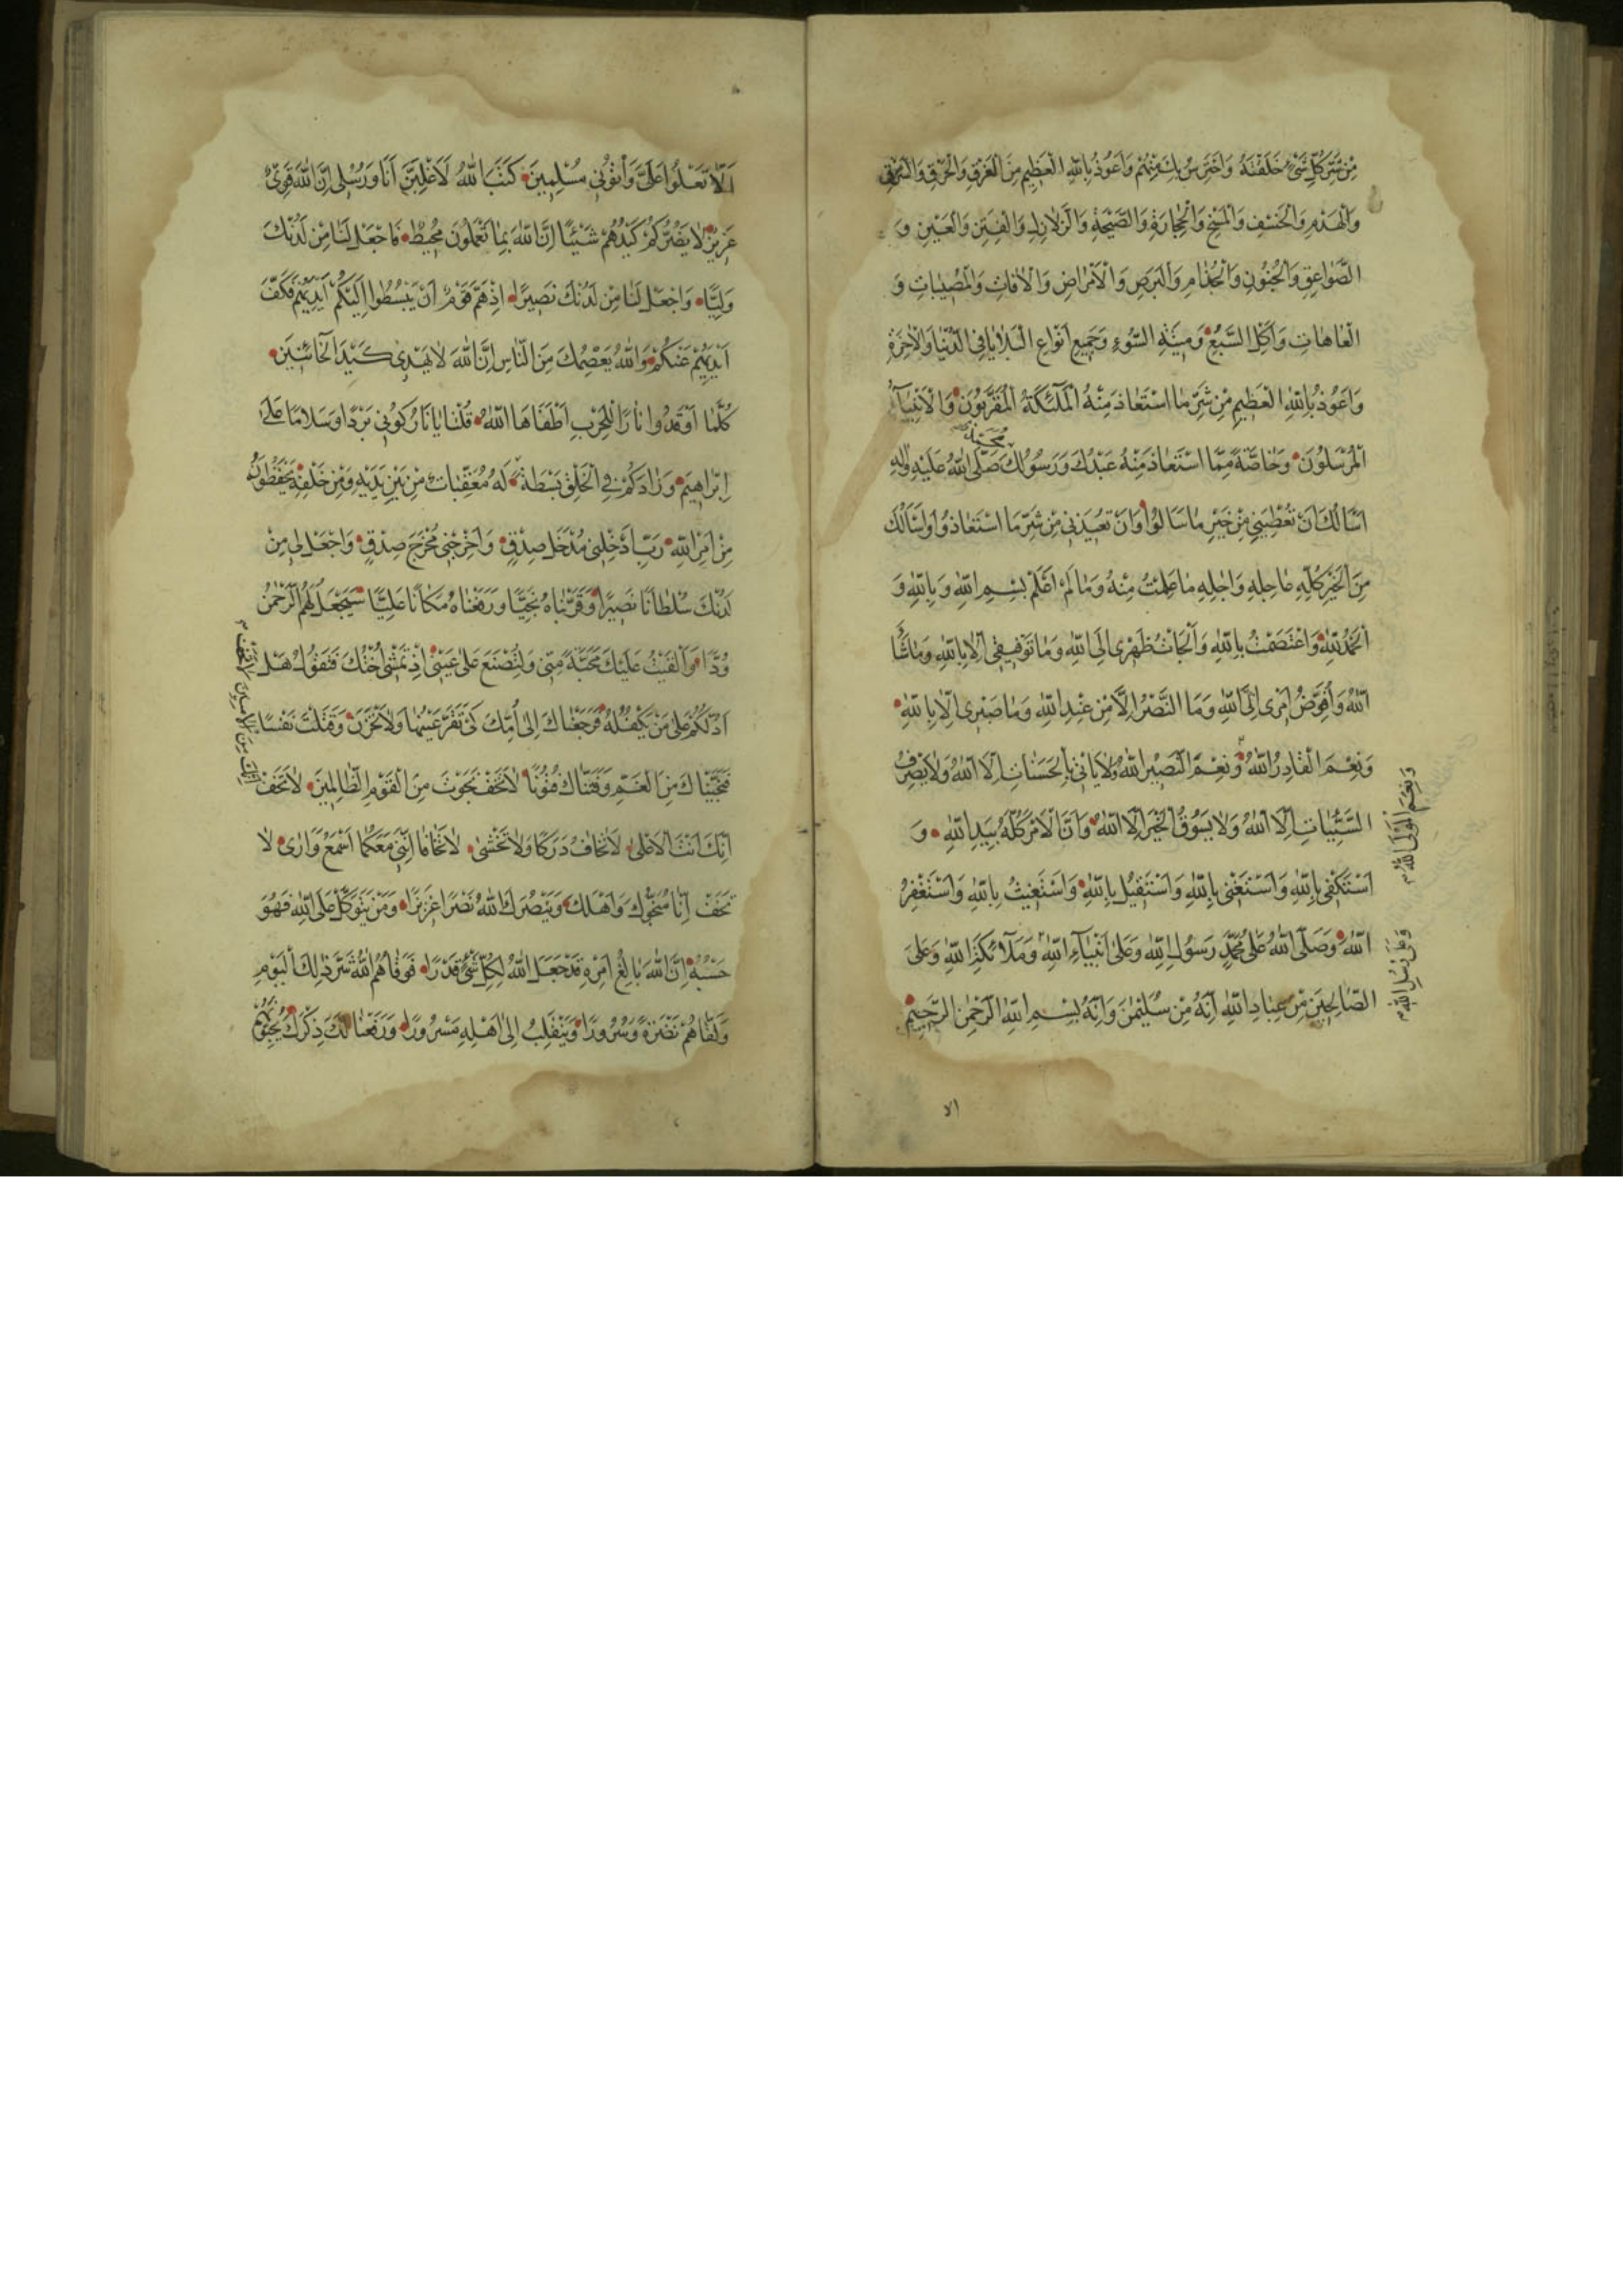 مِنْ شَرِّ كُلِّ شَيْءٍ خَلَقْتَهُ وَاَحْتَرِسُ بِكَ مِنْهُمْ وَاَعُوذُ بِاللّٰهِ الْعَظِيمِ مِنَ الْغَرَقِ وَالْحَرَقِ وَالشَّرَقِ
وَالْهَدْمِ وَالْخَسْفِ وَالْمَسْخِ وَالْحِجَارَةِ وَالصَّيْحَةِ وَالزَّلَازِلِ وَالْفِتَنِ وَالْعَيْنِ وَ
الصَّوَاعِقِ وَالْجُنُونِ وَالْجُذَامِ وَالْبَرَصِ وَالْاَمْرَاضِ وَالْآفَاتِ وَالْمُصِيبَاتِ وَ
الْعَاهَاتِ وَاَكْلِ السَّبُعِ وَمِيتَةِ السُّوءِ وَجَمِيعِ اَنْوَاعِ الْبَلَايَا فِي الدُّنْيَا وَالْآخِرَةِ
وَاَعُوذُ بِاللّٰهِ الْعَظِيمِ مِنْ شَرِّ مَا اسْتَعَاذَ مِنْهُ الْمَلٰئِكَةُ الْمُقَرَّبُونَ وَالْاَنْبِيَآءُ
الْمُرْسَلُونَ وَخَاصَّةً مِمَّا اسْتَعَاذَ مِنْهُ عَبْدُكَ وَرَسُولُكَ مُحَمَّدٌ صَلَّى اللّٰهُ عَلَيْهِ وَاٰلِهِ
اَسْاَلُكَ اَنْ تُعْطِيَنِي مِنْ خَيْرِ مَا سَاَلُوا وَاَنْ تُعِيذَنِي مِنْ شَرِّ مَا اسْتَعَاذُوا وَاَسْاَلُكَ
مِنَ الْخَيْرِ كُلِّهِ عَاجِلِهِ وَاٰجِلِهِ مَا عَلِمْتُ مِنْهُ وَمَا لَمْ اَعْلَمْ بِسْمِ اللّٰهِ وَبِاللّٰهِ وَ
الْحَمْدُ لِلّٰهِ وَاعْتَصَمْتُ بِاللّٰهِ وَاَلْجَاْتُ ظَهْرِي اِلَى اللّٰهِ وَمَا تَوْفِيقِي اِلَّا بِاللّٰهِ وَمَا شَآءَ
اللّٰهُ وَاُفَوِّضُ اَمْرِي اِلَى اللّٰهِ وَمَا النَّصْرُ اِلَّا مِنْ عِنْدِ اللّٰهِ وَمَا صَبْرِي اِلَّا بِاللّٰهِ
وَنِعْمَ الْقَادِرُ اللّٰهُ وَنِعْمَ النَّصِيرُ اللّٰهُ وَلَا يَاْتِي بِالْحَسَنَاتِ اِلَّا اللّٰهُ وَلَا يَصْرِفُ
وَنِعْمَ الْمَوْلَى اللّٰهُ
السَّيِّئَاتِ اِلَّا اللّٰهُ وَلَا يَسُوقُ الْخَيْرَ اِلَّا اللّٰهُ وَاَنَّ الْاَمْرَ كُلَّهُ بِيَدِ اللّٰهِ وَ
اَسْتَكْفِي بِاللّٰهِ وَاَسْتَغْنِي بِاللّٰهِ وَاَسْتَقِيلُ بِاللّٰهِ وَاَسْتَغِيثُ بِاللّٰهِ وَاَسْتَغْفِرُ
اللّٰهَ وَصَلَّى اللّٰهُ عَلٰى مُحَمَّدٍ رَسُولِ اللّٰهِ وَعَلٰى اَنْبِيَآءِ اللّٰهِ وَمَلَآئِكَةِ اللّٰهِ وَعَلَى
الصَّالِحِينَ مِنْ عِبَادِ اللّٰهِ اِنَّهُ مِنْ سُلَيْمٰنَ وَاِنَّهُ بِسْمِ اللّٰهِ الرَّحْمٰنِ الرَّحِيمِ
الا
اَلَّا تَعْلُوا عَلَيَّ وَاْتُونِي مُسْلِمِينَ كَتَبَ اللّٰهُ لَاَغْلِبَنَّ اَنَا وَرُسُلِي اِنَّ اللّٰهَ قَوِيٌّ
عَزِيزٌ لَا يَضُرُّكُمْ كَيْدُهُمْ شَيْئًا اِنَّ اللّٰهَ بِمَا تَعْمَلُونَ مُحِيطٌ فَاجْعَلْ لَنَا مِنْ لَدُنْكَ
وَلِيًّا وَاجْعَلْ لَنَا مِنْ لَدُنْكَ نَصِيرًا اِذْ هَمَّ قَوْمٌ اَنْ يَبْسُطُوا اِلَيْكُمْ اَيْدِيَهُمْ فَكَفَّ
اَيْدِيَهُمْ عَنْكُمْ وَاللّٰهُ يَعْصِمُكَ مِنَ النَّاسِ اِنَّ اللّٰهَ لَا يَهْدِي كَيْدَ الْخَائِنِينَ
كُلَّمَا اَوْقَدُوا نَارًا لِلْحَرْبِ اَطْفَاَهَا اللّٰهُ قُلْنَا يَا نَارُ كُونِي بَرْدًا وَسَلَامًا عَلٰى
اِبْرَاهِيمَ وَزَادَكُمْ فِي الْخَلْقِ بَسْطَةً لَهُ مُعَقِّبَاتٌ مِنْ بَيْنِ يَدَيْهِ وَمِنْ خَلْفِهِ يَحْفَظُونَهُ
مِنْ اَمْرِ اللّٰهِ رَبِّ اَدْخِلْنِي مُدْخَلَ صِدْقٍ وَاَخْرِجْنِي مُخْرَجَ صِدْقٍ وَاجْعَلْ لِي مِنْ
لَدُنْكَ سُلْطَانًا نَصِيرًا وَقَرَّبْنَاهُ نَجِيًّا وَرَفَعْنَاهُ مَكَانًا عَلِيًّا سَيَجْعَلُ لَهُمُ الرَّحْمٰنُ
وُدًّا وَاَلْقَيْتُ عَلَيْكَ مَحَبَّةً مِنِّي وَلِتُصْنَعَ عَلٰى عَيْنِي اِذْ تَمْشِي اُخْتُكَ فَتَقُولُ هَلْ
اَدُلُّكُمْ عَلٰى مَنْ يَكْفُلُهُ فَرَجَعْنَاكَ اِلٰى اُمِّكَ كَيْ تَقَرَّ عَيْنُهَا وَلَا تَحْزَنَ وَقَتَلْتَ نَفْسًا
فَنَجَّيْنَاكَ مِنَ الْغَمِّ وَفَتَنَّاكَ فُتُونًا لَا تَخَفْ نَجَوْتَ مِنَ الْقَوْمِ الظَّالِمِينَ لَا تَخَفْ
اِنَّكَ مِنَ الْآمِنِينَ لَا تَخَفْ
اِنَّكَ اَنْتَ الْاَعْلٰى لَا تَخَافُ دَرَكًا وَلَا تَخْشٰى لَا تَخَافَا اِنَّنِي مَعَكُمَا اَسْمَعُ وَاَرٰى لَا
تَخَفْ اِنَّا مُنَجُّوكَ وَاَهْلَكَ وَيَنْصُرَكَ اللّٰهُ نَصْرًا عَزِيزًا وَمَنْ يَتَوَكَّلْ عَلَى اللّٰهِ فَهُوَ
حَسْبُهُ اِنَّ اللّٰهَ بَالِغُ اَمْرِهِ قَدْ جَعَلَ اللّٰهُ لِكُلِّ شَيْءٍ قَدْرًا فَوَقَاهُمُ اللّٰهُ شَرَّ ذٰلِكَ الْيَوْمِ
وَلَقَّاهُمْ نَضْرَةً وَسُرُورًا وَيَنْقَلِبُ اِلٰى اَهْلِهِ مَسْرُورًا وَرَفَعْنَا لَكَ ذِكْرَكَ يُحِبُّونَهُمْ